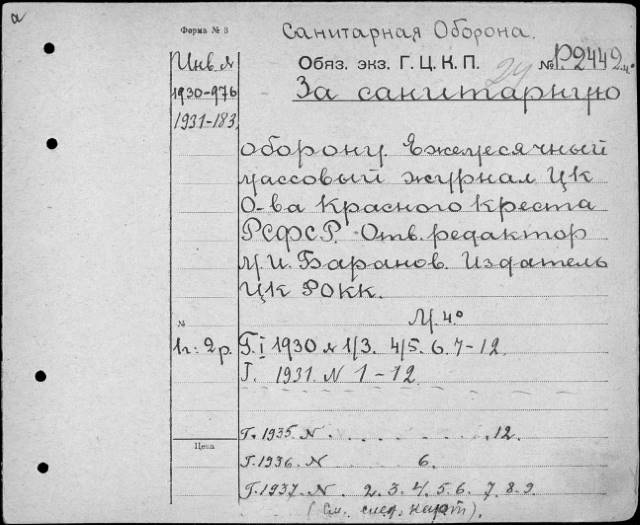 а
Форма № 3
Санитарная Оборона.
Инв №
1930-976
1931-183
Обяз. экз. Г. Ц. К. П.
24
№ Р.2442 ч°
За санитарную
оборону. Ежемесячный
массовый журнал ЦК
О-ва Красного Креста
РСФСР. Отв. редактор
М.И. Баранов. Издатель
ЦК РОКК.
М. 4°
№
1г. 2р.
Г. I 1930 № 1/3. 4/5. 6. 7-12.
Г. 1931. N 1-12
Цена
Г. 1935. N . . . . . . . . 12.
Г. 1936. N 6.
Г. 1937. N . 2. 3. 4. 5. 6. 7. 8. 9.
(См. след. карт).